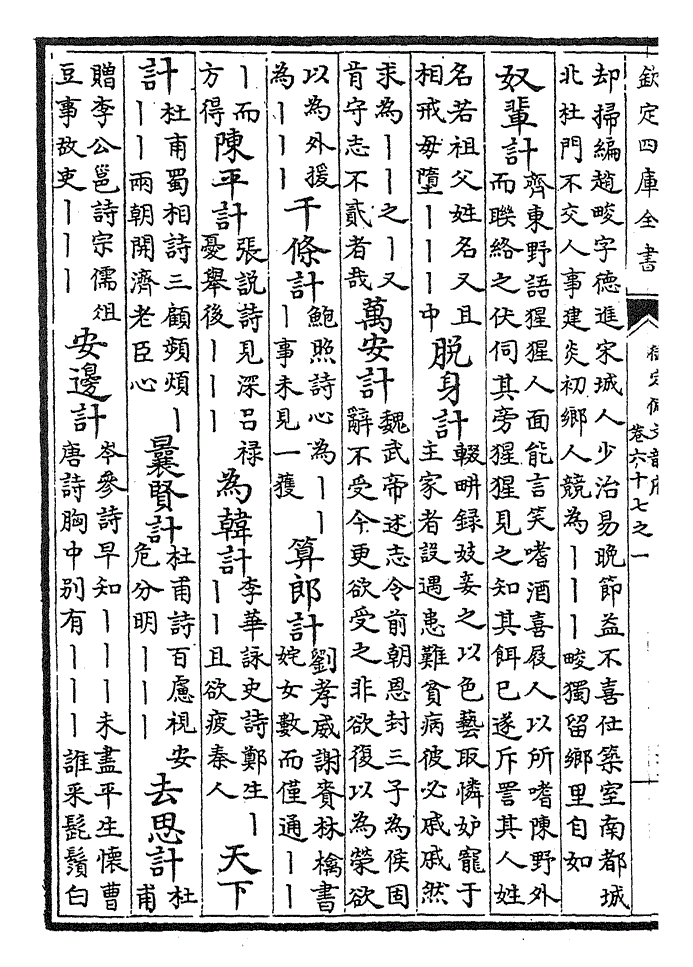 欽定四庫全書
卷六十七之一
却掃編趙畯字德進宋城人少治易晚節益不喜仕築室南都城
北杜門不交人事建炎初鄉人競為丨丨丨畯獨留鄉里自如
奴輩計
齊東野語猩猩人面能言笑嗜酒喜屐人以所嗜陳野外
而聯絡之伏伺其旁猩猩見之知其餌已遂斥詈其人姓
名若祖父姓名又且
相戒毋墮丨丨丨中
脫身計
輟畊錄妓妾之以色藝取憐妒寵于
主家者設遇患難貧病彼必戚戚然
求為丨丨之丨又
肯守志不貳者哉
萬安計
魏武帝述志令前朝恩封三子為侯固
辭不受今更欲受之非欲復以為榮欲
以為外援
為丨丨丨
千條計
鮑照詩心為丨丨
丨事未見一獲
算郎計
劉孝威謝賚林檎書
姹女數而僅通丨丨
丨而
方得
陳平計
張說詩見深呂祿
憂舉後丨丨丨
為韓計
李華詠史詩鄭生丨
丨丨且欲疲秦人
天下
計
杜甫蜀相詩三顧頻煩丨
丨丨兩朝開濟老臣心
曩賢計
杜甫詩百慮視安
危分明丨丨丨
去思計
杜
甫
贈李公邕詩宗儒俎
豆事故吏丨丨丨
安邊計
岑參詩早知丨丨丨未盡平生懷曹
唐詩胸中别有丨丨丨誰采髭鬚白